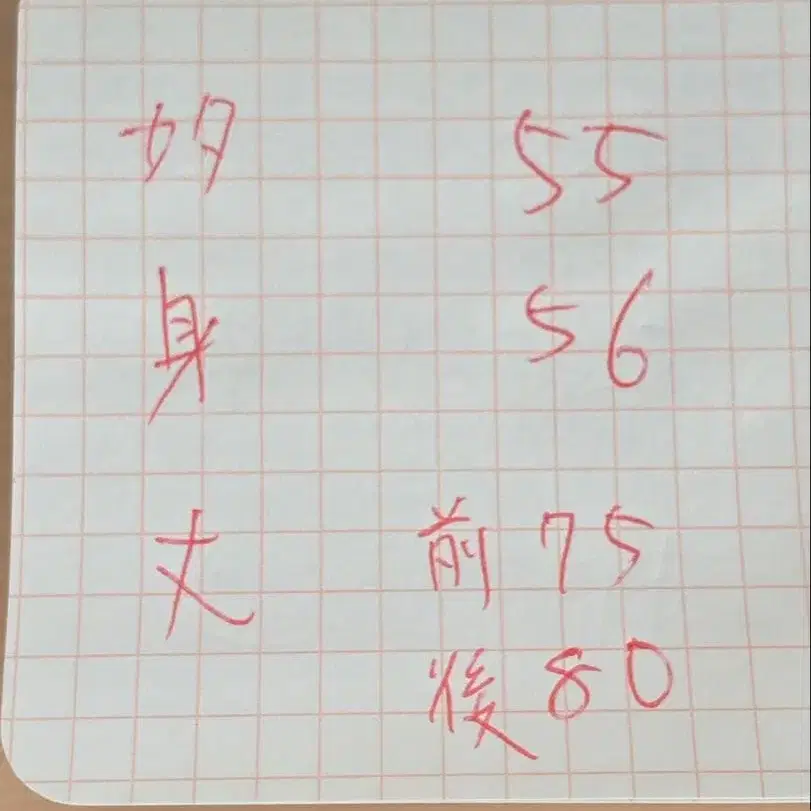 カタ 55
身 56
丈 前 75
後 80